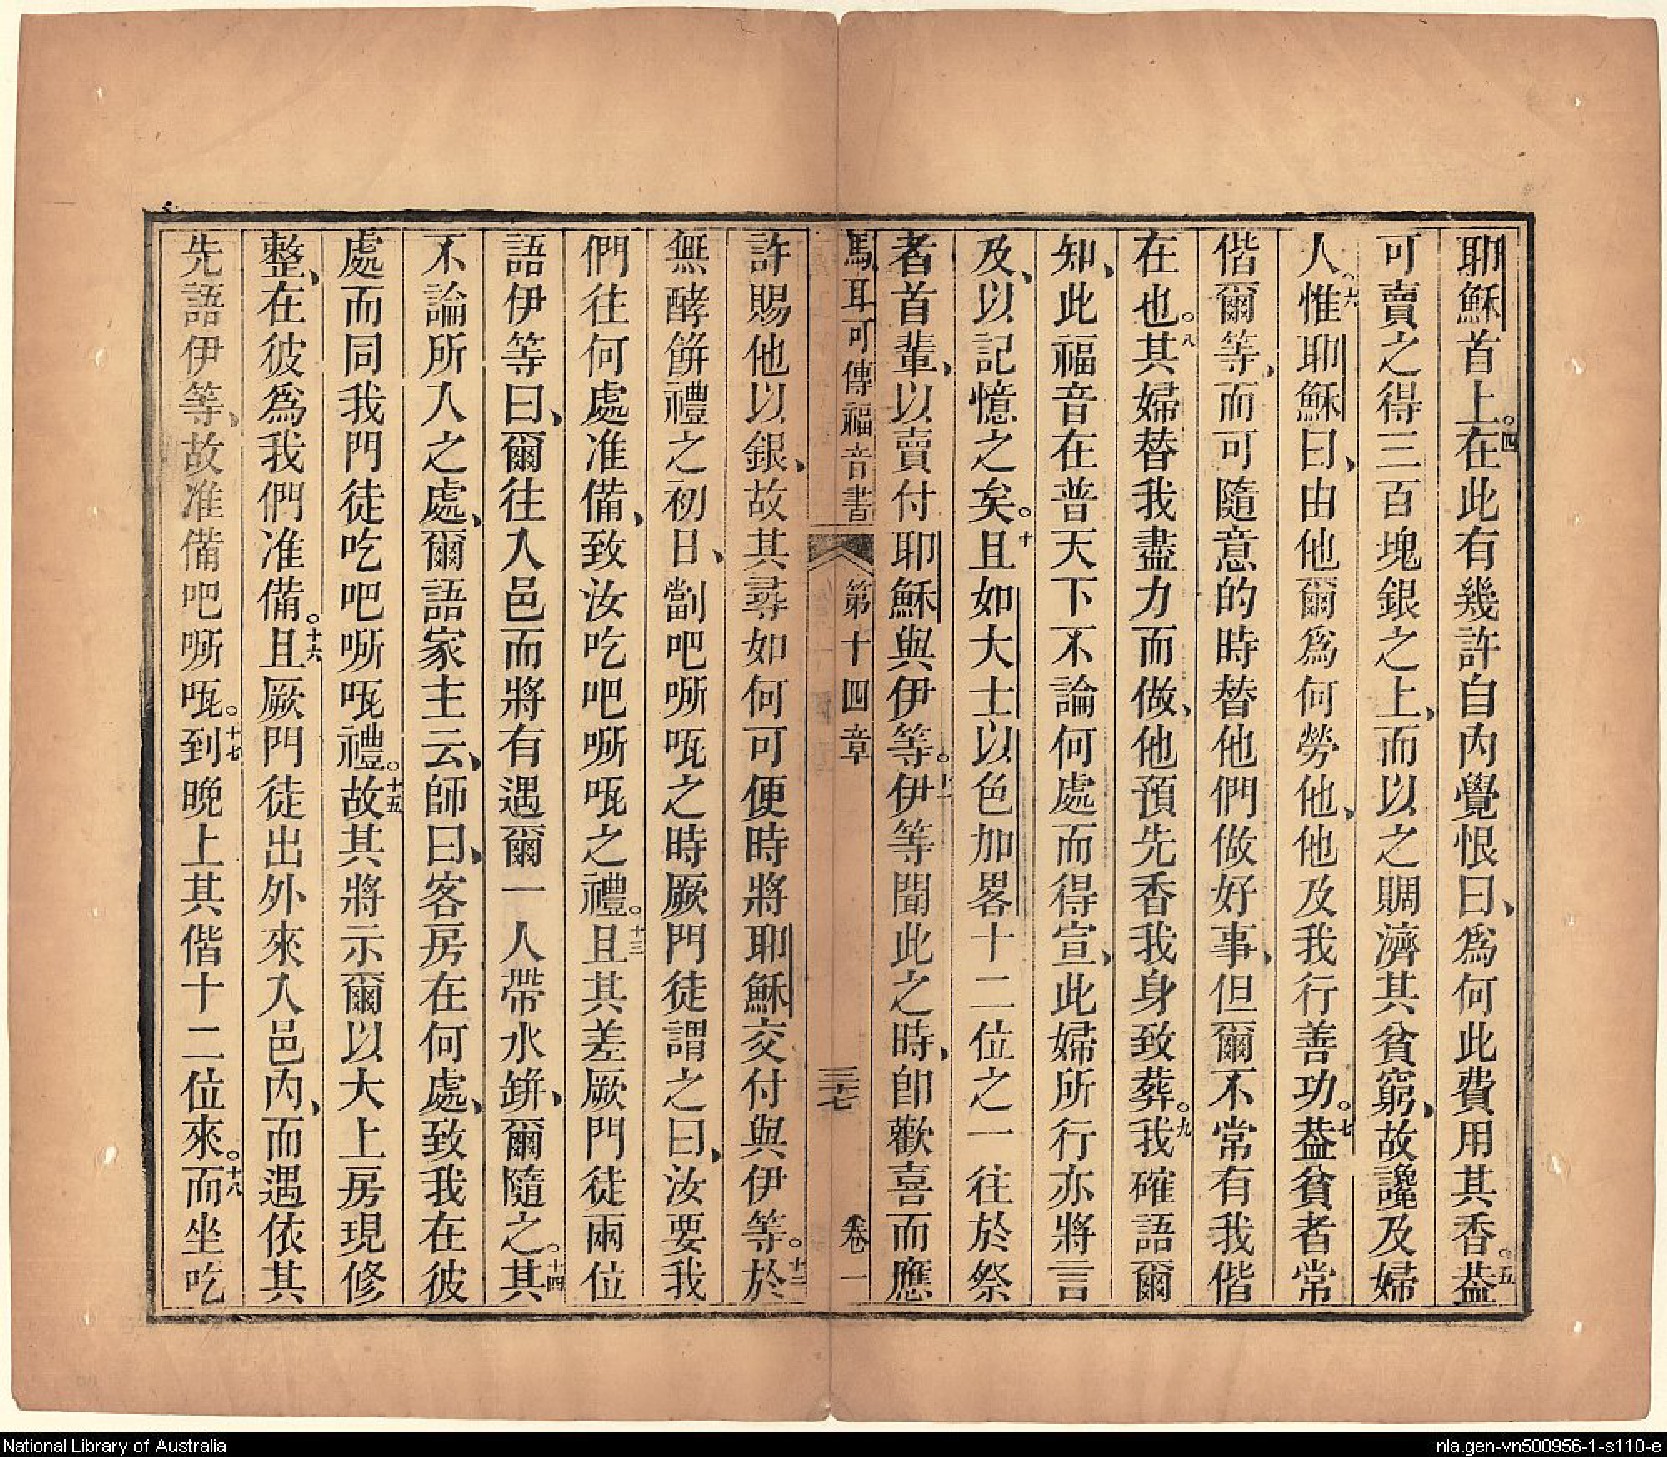 耶穌首上。四在此有幾許自內覺恨曰、爲何此費用其香。五葢
可賣之得三百塊銀之上、而以之賙濟其貧窮、故讒及婦
人。六惟耶穌曰、由他爾爲何勞他、他及我行善功。七葢貧者常
偕爾等、而可隨意的時替他們做好事、但爾不常有我偕
在也。八其婦替我盡力而做、他預先香我身致葬。九我確語爾
知、此福音在普天下不論何處而得宣、此婦所行亦將言
及、以記憶之矣。十且如大士以色加畧十二位之一往於祭
者首輩、以賣付耶穌與伊等。十一伊等聞此之時、卽歡喜而應
馬耳可傳福音書 第十四章 三十七 卷一
許賜他以銀、故其尋如何可便時將耶穌交付與伊等。十二於
無酵餅禮之初日、劏吧嘶咓之時厥門徒謂之曰、汝要我
們往何處准備、致汝吃吧嘶咓之禮。十三且其差厥門徒兩位
語伊等曰、爾往入邑而將有遇爾一人帶水缾、爾隨之。十四其
不論所入之處、爾語家主云、師曰、客房在何處、致我在彼
處而同我門徒吃吧嘶咓禮。十五故其將示爾以大上房現修
整、在彼爲我們准備。十六且厥門徒出外來入邑內、而遇依其
先語伊等、故准備吧嘶咓。十七到晚上其偕十二位來。十八而坐吃
National Library of Australia
nla.gen-vn500956-1-s110-e